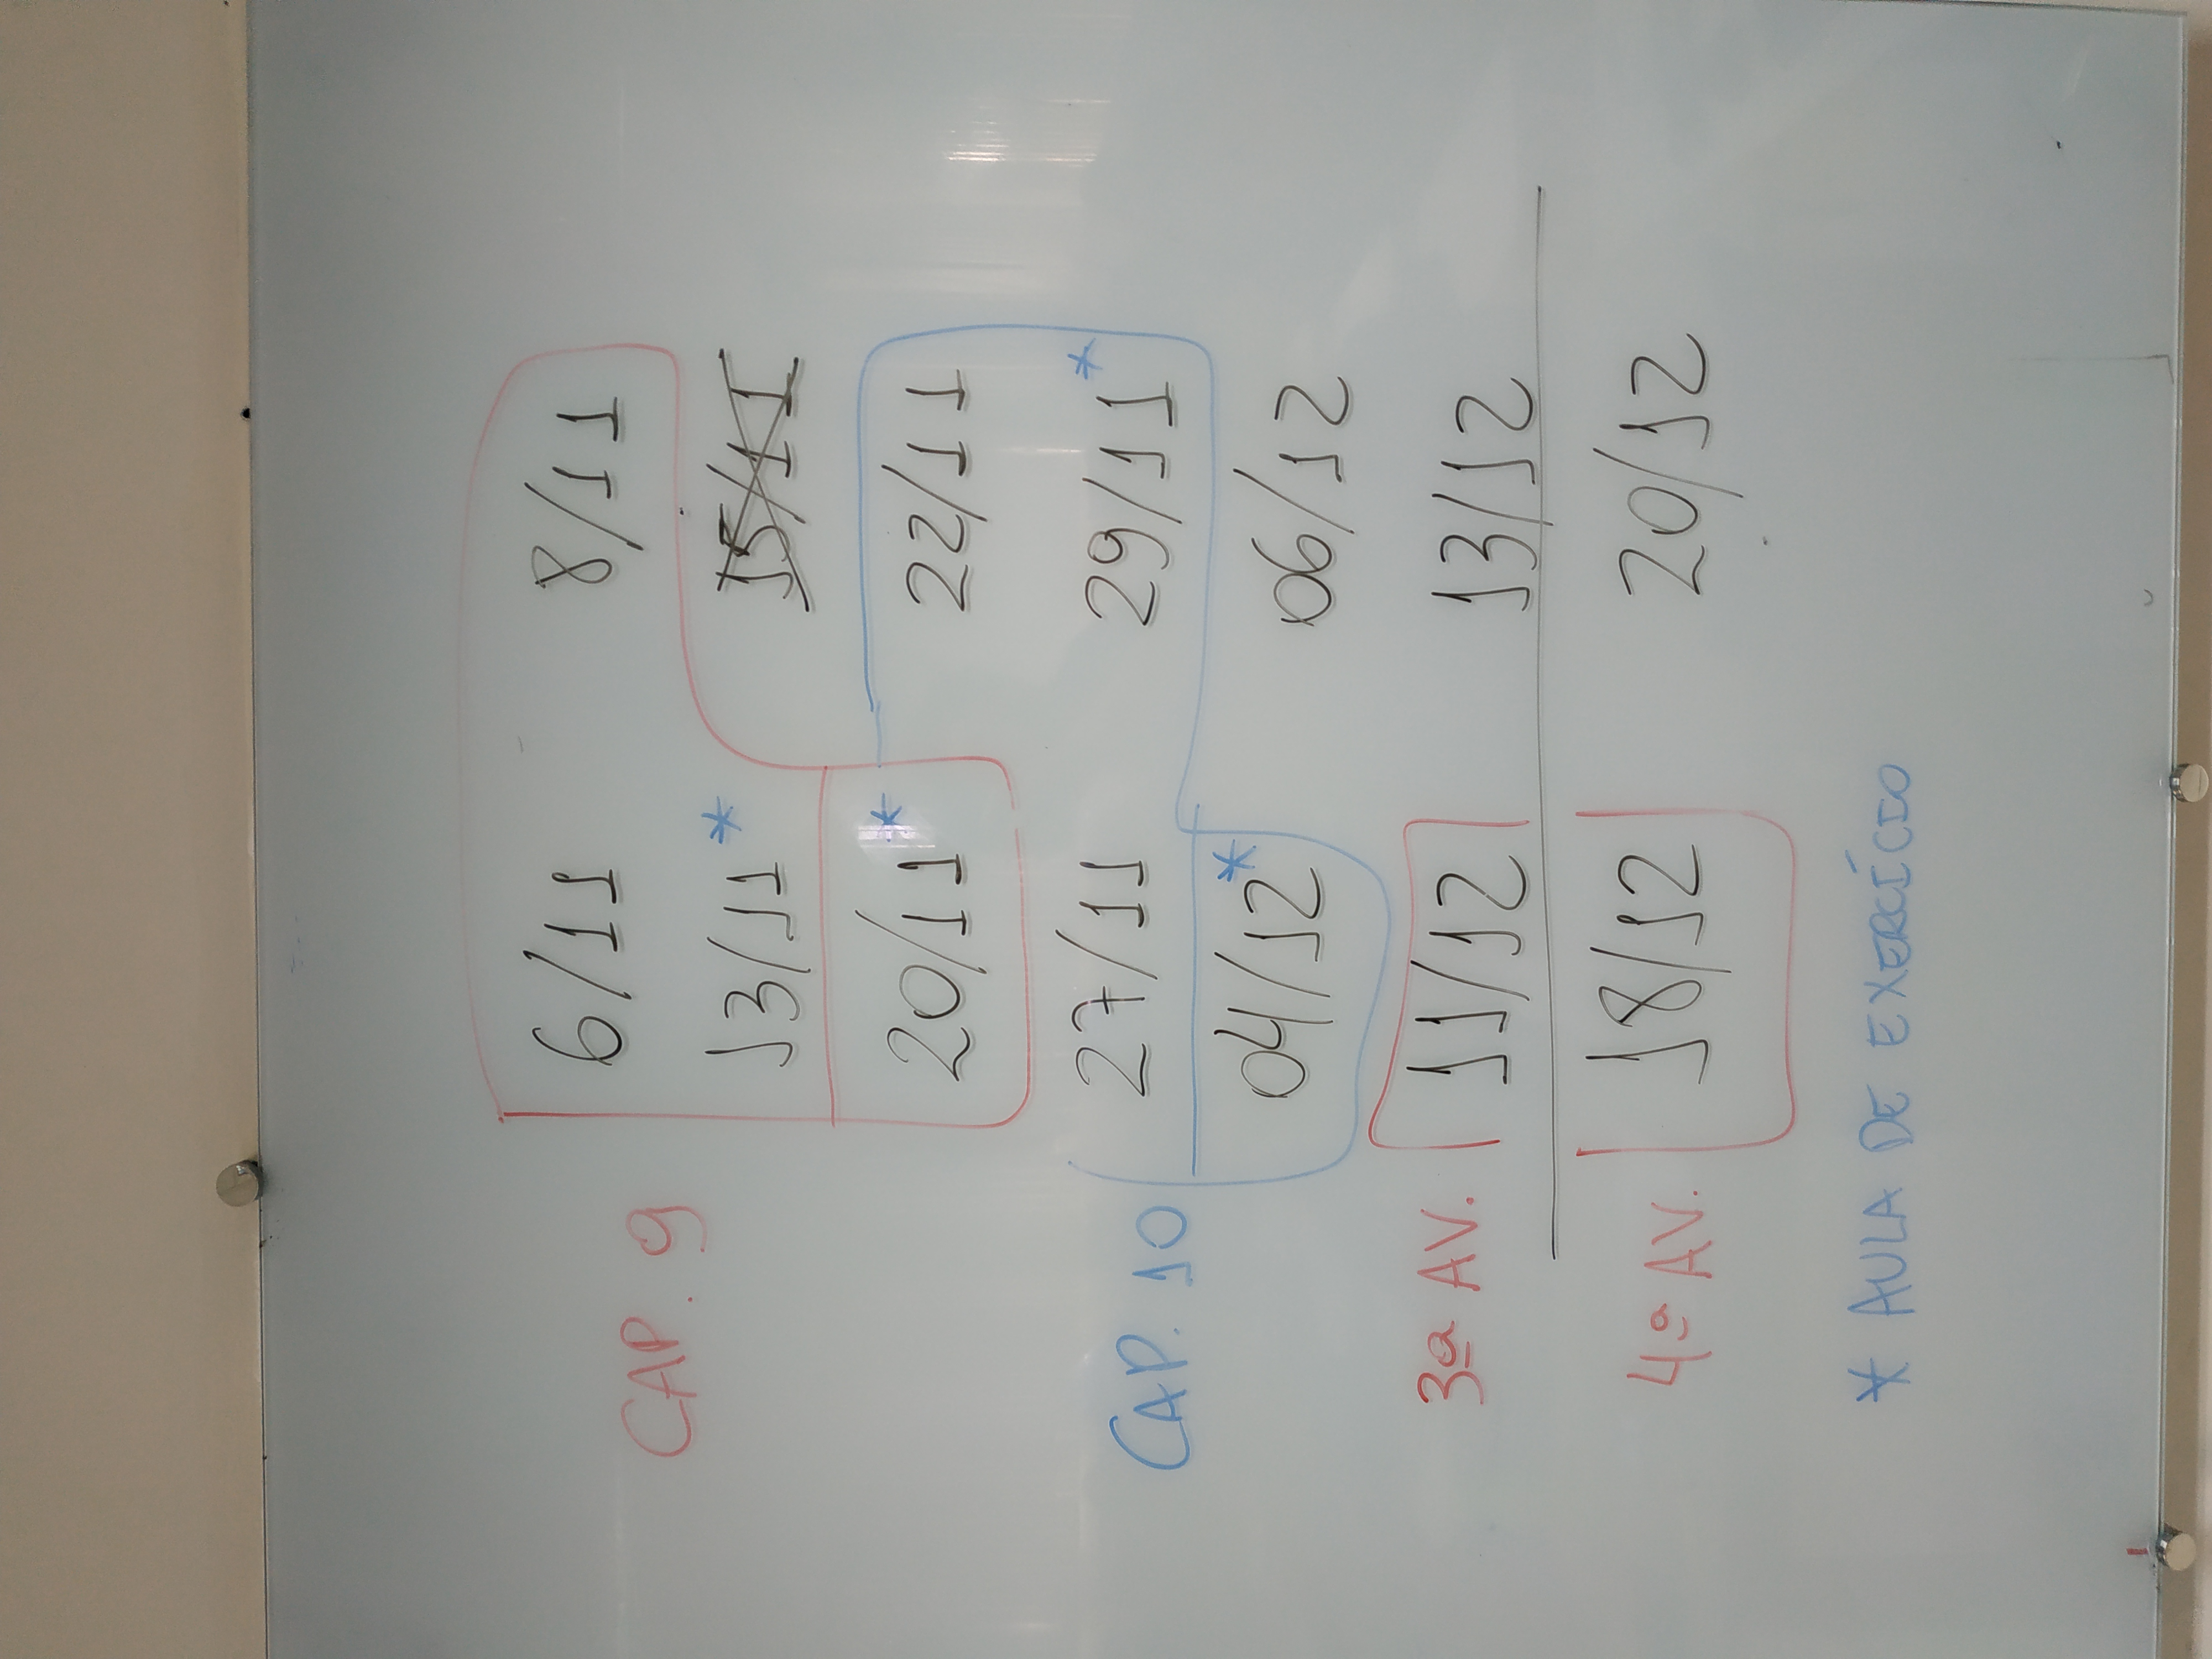 6/11 8/11
CAP. 9
13/11* 15/11
20/11* 22/11
27/11 29/11*
CAP. 10
04/12* 06/12
3ª AV. 11/12 13/12
4ª AV. 18/12 20/12
* AULA DE EXERCÍCIO